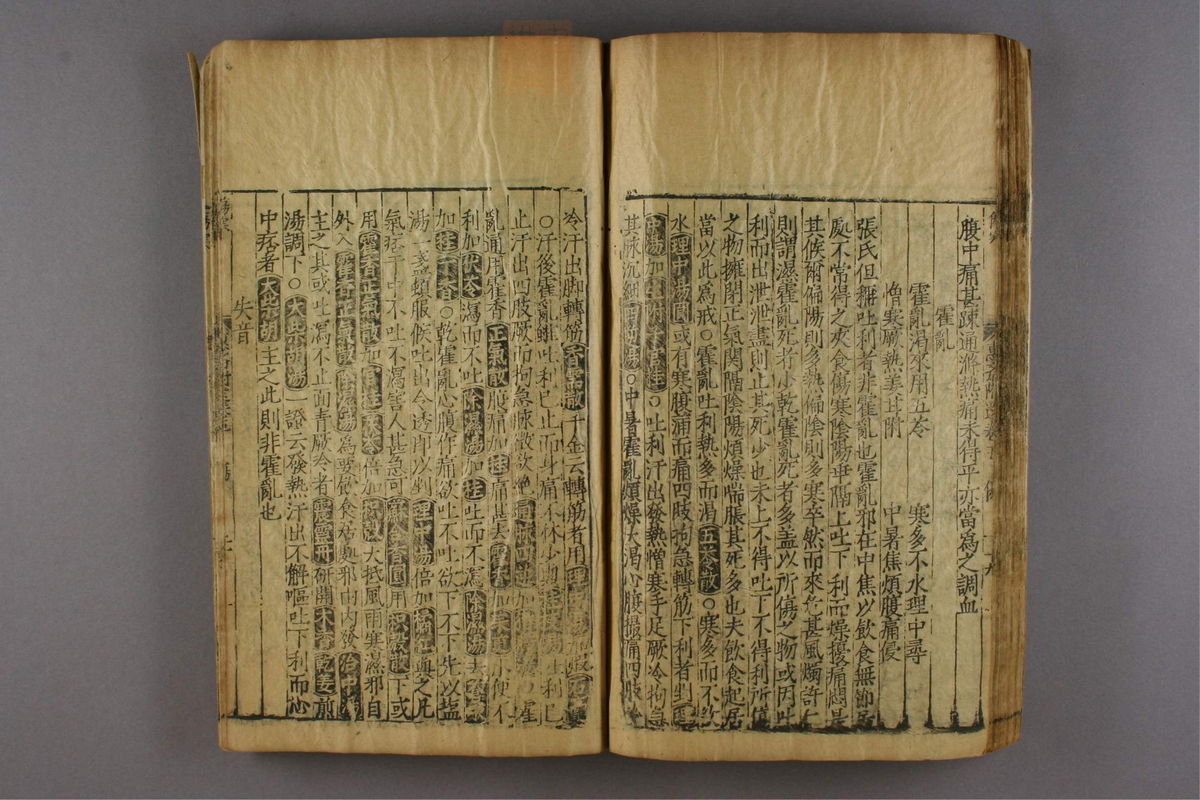 腹中痛甚疎通滌熱痛未得平亦當寫之調血
霍亂
霍亂渴來用五苓 寒多不水理中尋
憎寒厥熱姜附 中暑焦煩腹痛侵
張氏但稱吐利者非霍亂也霍亂邪在中焦以飲食無節
處不常得之夾食傷寒陰陽乖隔上吐下利而燥擾痛悶是
其候爾偏陽則多熱偏陰則多寒卒然而來危甚風燭許仁
則謂濕霍亂死者少乾霍亂死者多蓋以所傷之物或因吐
利而出泄泄盡則止其死少也未上不得吐下不得利所傷
之物擁閉正氣關隔陰陽煩燥喘脹其死多也夫飲食起居
當以此為戒○霍亂吐利熱多而渴五苓散○寒多而不飲
水理中湯圓或有寒腹痛而痛四肢拘急轉筋下利者
中湯加○吐利汗出發熱憎寒手足厥冷拘急
其脉沉細四逆湯○中暑霍亂煩燥大渴心腹撮痛四肢
冷汗出脚轉筋香薷散千金云轉筋者用理中湯加
○汗後霍亂雖吐利已止而身痛不休少與利已
止汗出四肢厥而拘急脉微欲絶加○霍
亂通用霍香正氣散腹痛加桂痛甚去便不
利加茯苓瀉而不吐除濕湯加桂吐而不瀉除濕湯去
加桂丁香○乾霍亂心腹作痛欲吐不吐欲下不下先以塩
湯一盞頓服候吐出令透即以理中湯倍加橘紅與之凡
氣痞于中不吐不瀉害人甚急可蘇合香圓用枳殼散下或
用霍香正氣散加官桂茯苓倍加枳殼大抵風雨寒濕邪自
外入霍香正氣散除濕湯為要飲食𥻘邪由内發治中湯
主之其或吐瀉不止面青厥冷者震靈丹研開木香乾姜煎
湯調下○大柴胡湯一證云發熱汗出不解嘔吐下利而心
中痞者大柴胡主之此則非霍亂也
失音